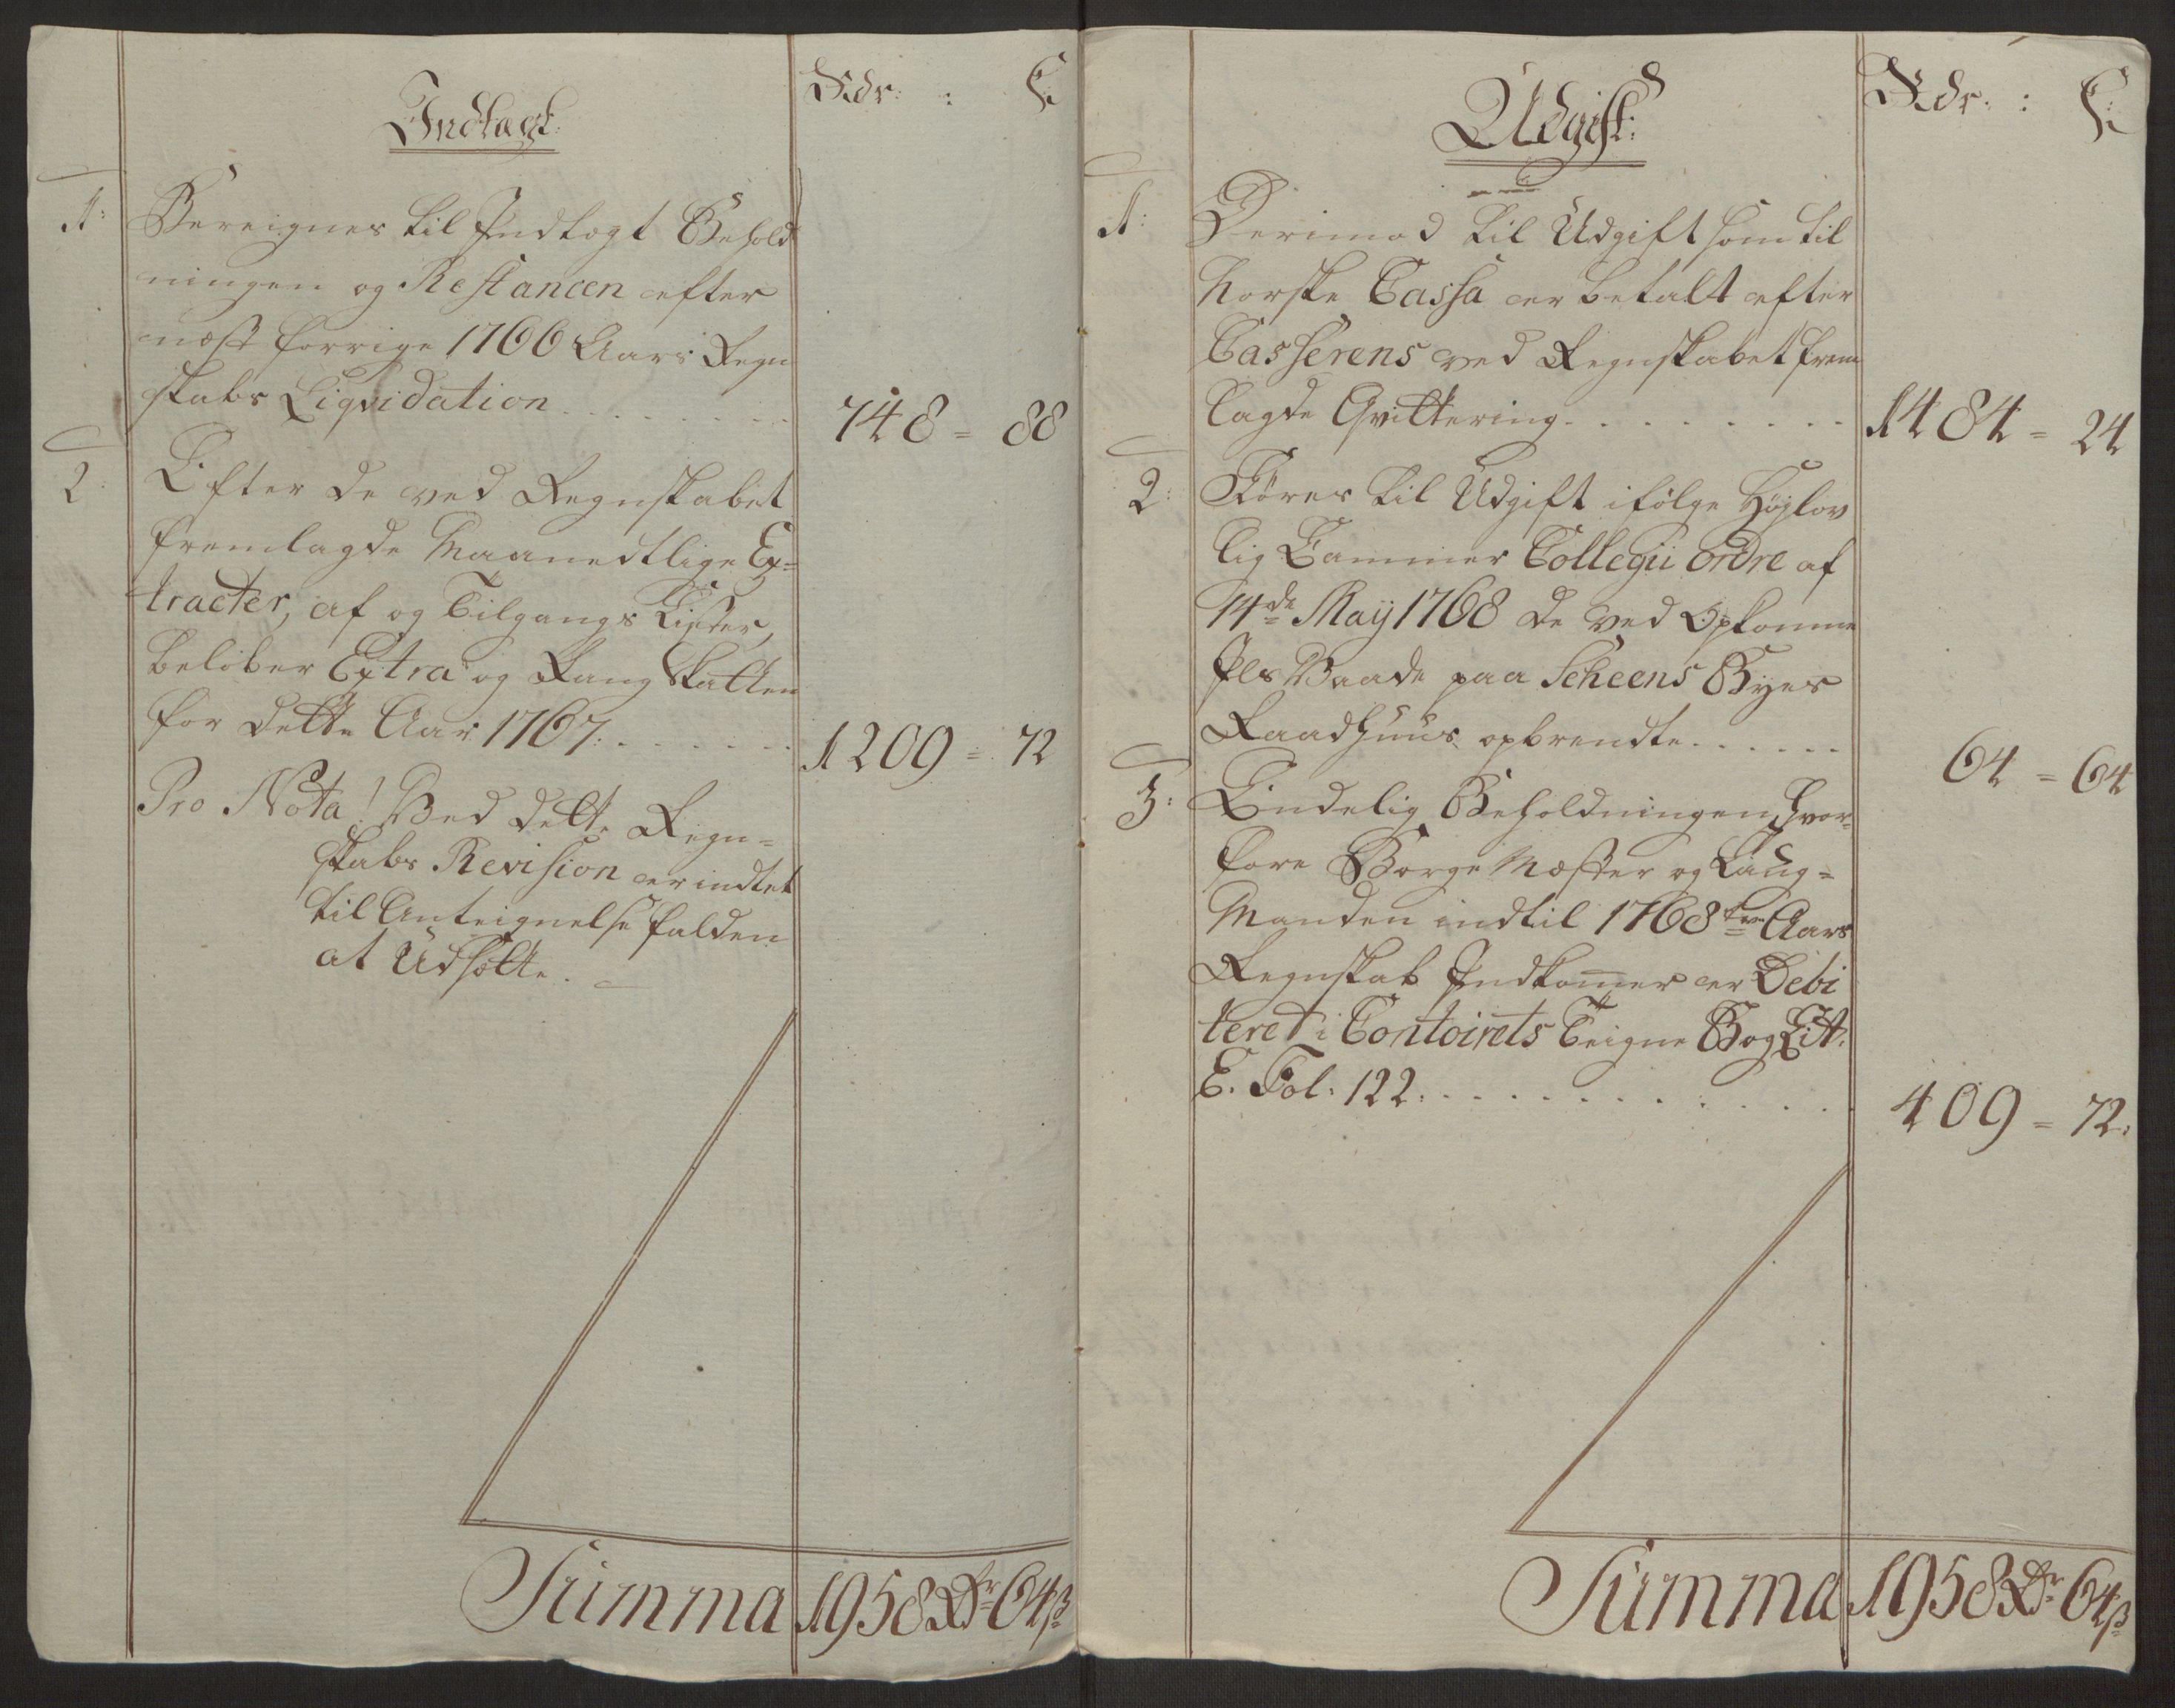 Indtægt:
Rdr: : ß:
1: Bereignes til Indtægt Behold
ningen og Restancen efter
næst forrige 1766 Aars Regn
skabs Liqvidation . . . . . . . 748 = 88
2: Efter de ved Regnskabet
fremlagde Maanedtlige Ex=
tracter, af og Tilgangs Lister,
beløber Extra og Rang Skatten
for dette Aar 1767: . . . . . . 1209 = 72
Pro Nota! Ved dette Regn=
skabs Revision er indtet
til Anteignelse falden
at Udsætte. —
Summa 1958 Rdr 64 ß
Udgift:
Rdr: : ß:
1: Derimod til Udgift som til
Norske Cassa er betalt efter
Casserens ved Regnskabet frem
lagde Qvittering . . . . . . . . 1484 = 24
2: Føres til Udgift ifølge Høylov
lig Cammer Collegii Ordre af
14de May 1768 de ved Opkomme
Ils Vaade paa Scheens Byes
Raadhuus opbrendte . . . . . . 64 = 64
3: Endelig Beholdningen, hvor=
fore Borge Mæster og Laug=
Manden indtil 1768tve Aars
Regnskab Indkommer er Debi
teret i Contoirets Teigne Bog Litt.
E. Fol: 122. . . . . . . . . . . . 409 = 72.
Summa 1958 Rdr 64 ß